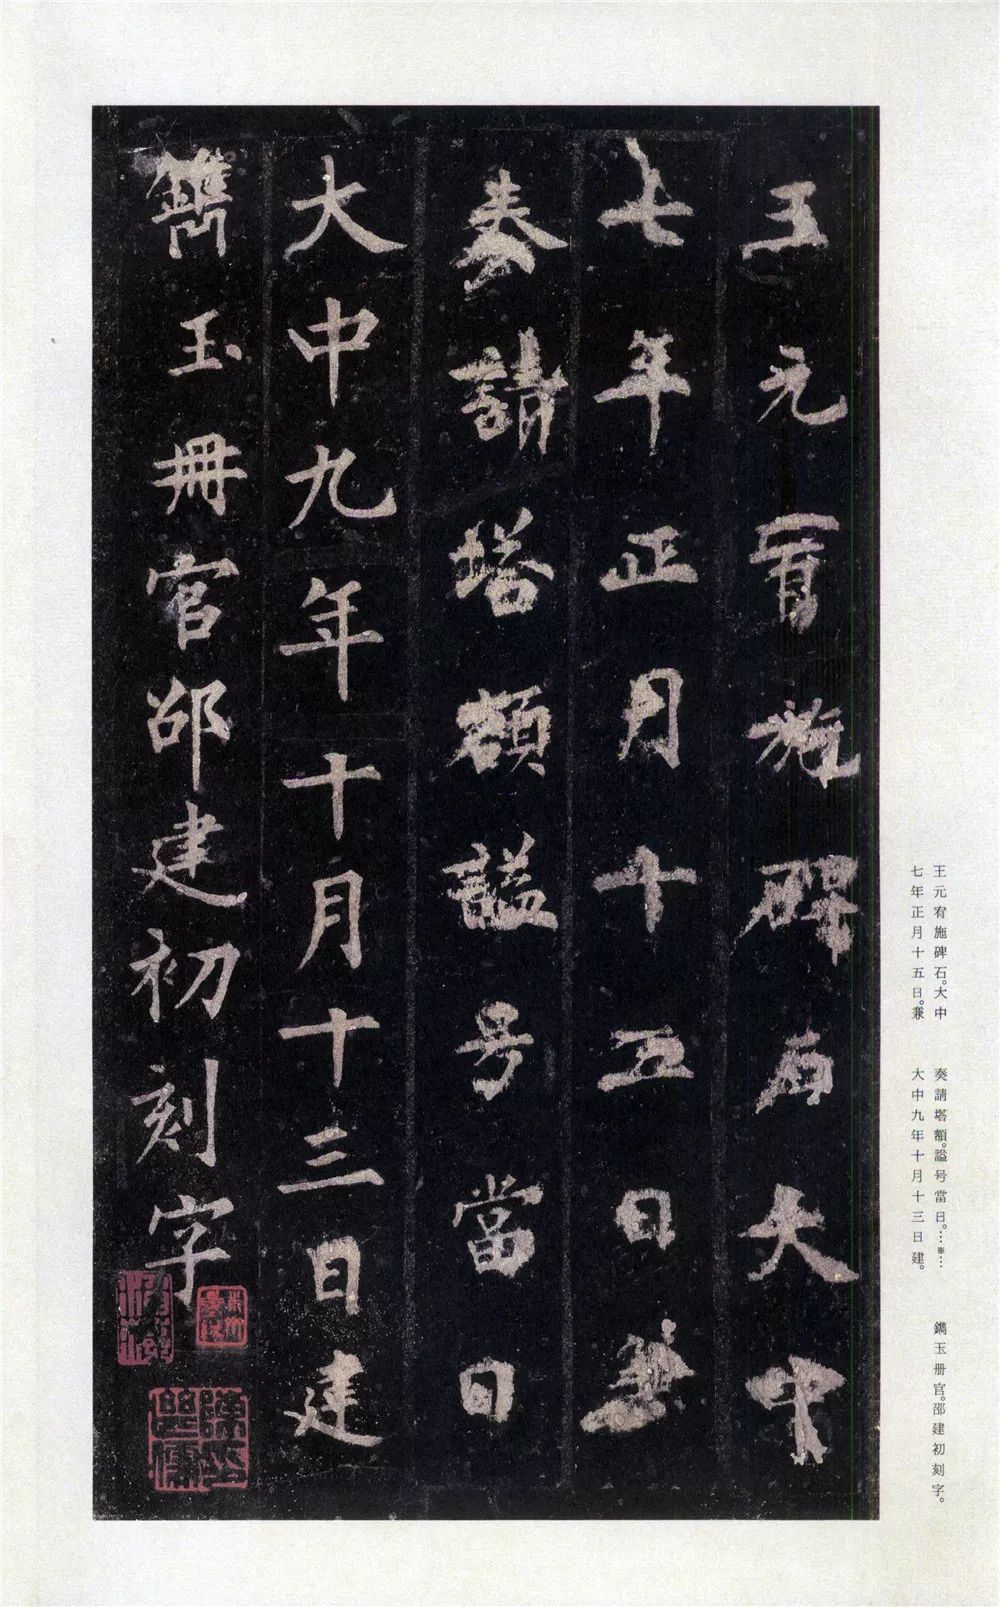 王元宥施碑石大中
七年正月十五日兼
奏請塔額謚号當日
大中九年十月十三日建
鐫玉冊官邵建初刻字
王元宥施碑石。大中
七年正月十五日。兼
奏請塔額。謚号當日。…※…
大中九年十月十三日建。
鐫玉册官。邵建初刻字。